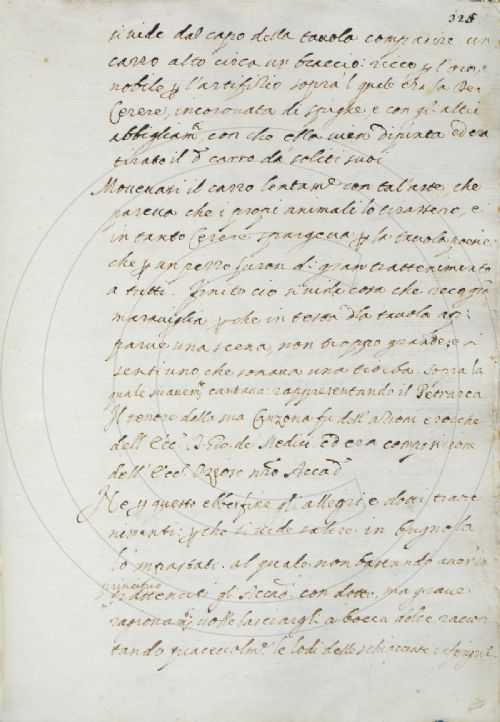 325
si vide dal capo della tavola comparire un
carro alto circa un braccio: ricco p l'oro, e
nobile p l'artifizio sopra 'l quale era la Dea
Cerere, incoronata di spighe e con gl'altri
abbigliam.ti con che ella vien dipinta ed era
tirato il d.o carro da' soliti suoi
Movevasi il carro lentam.te con tal'arte, che
pareva che i propri animali lo tirassero, e
in tanto Cerere spargeva p la tavola poesie
che p un pezzo furon di gran trattenimento
a tutti. Finito ciò si vide cosa che recò gra
maraviglia p che in testa d.la tavola ap:
parve una scena, non troppo grande: e si
sentì uno che sonava una tiorba. sopra la
quale suavem.te cantava: rappresentando il Petrarca.
Il tenore della sua Canzona fu dell'azioni eroiche
dell'Ecc.mo D. Gio: de Medici ed era
dell'Ecc.mo nro Accad.o
Ne p questo ebber fine gli allegri, e dotti tratte
nimenti: p che si vide salire in bugnola
lo Impastati. al quale non bastando aver in
principio
trattenuti gl'Accad.i con dotti, ma grave
ragionam.ti volle lasciargli a bocca dolce raccon
tando piacevolm.te le lodi delle schiacciate